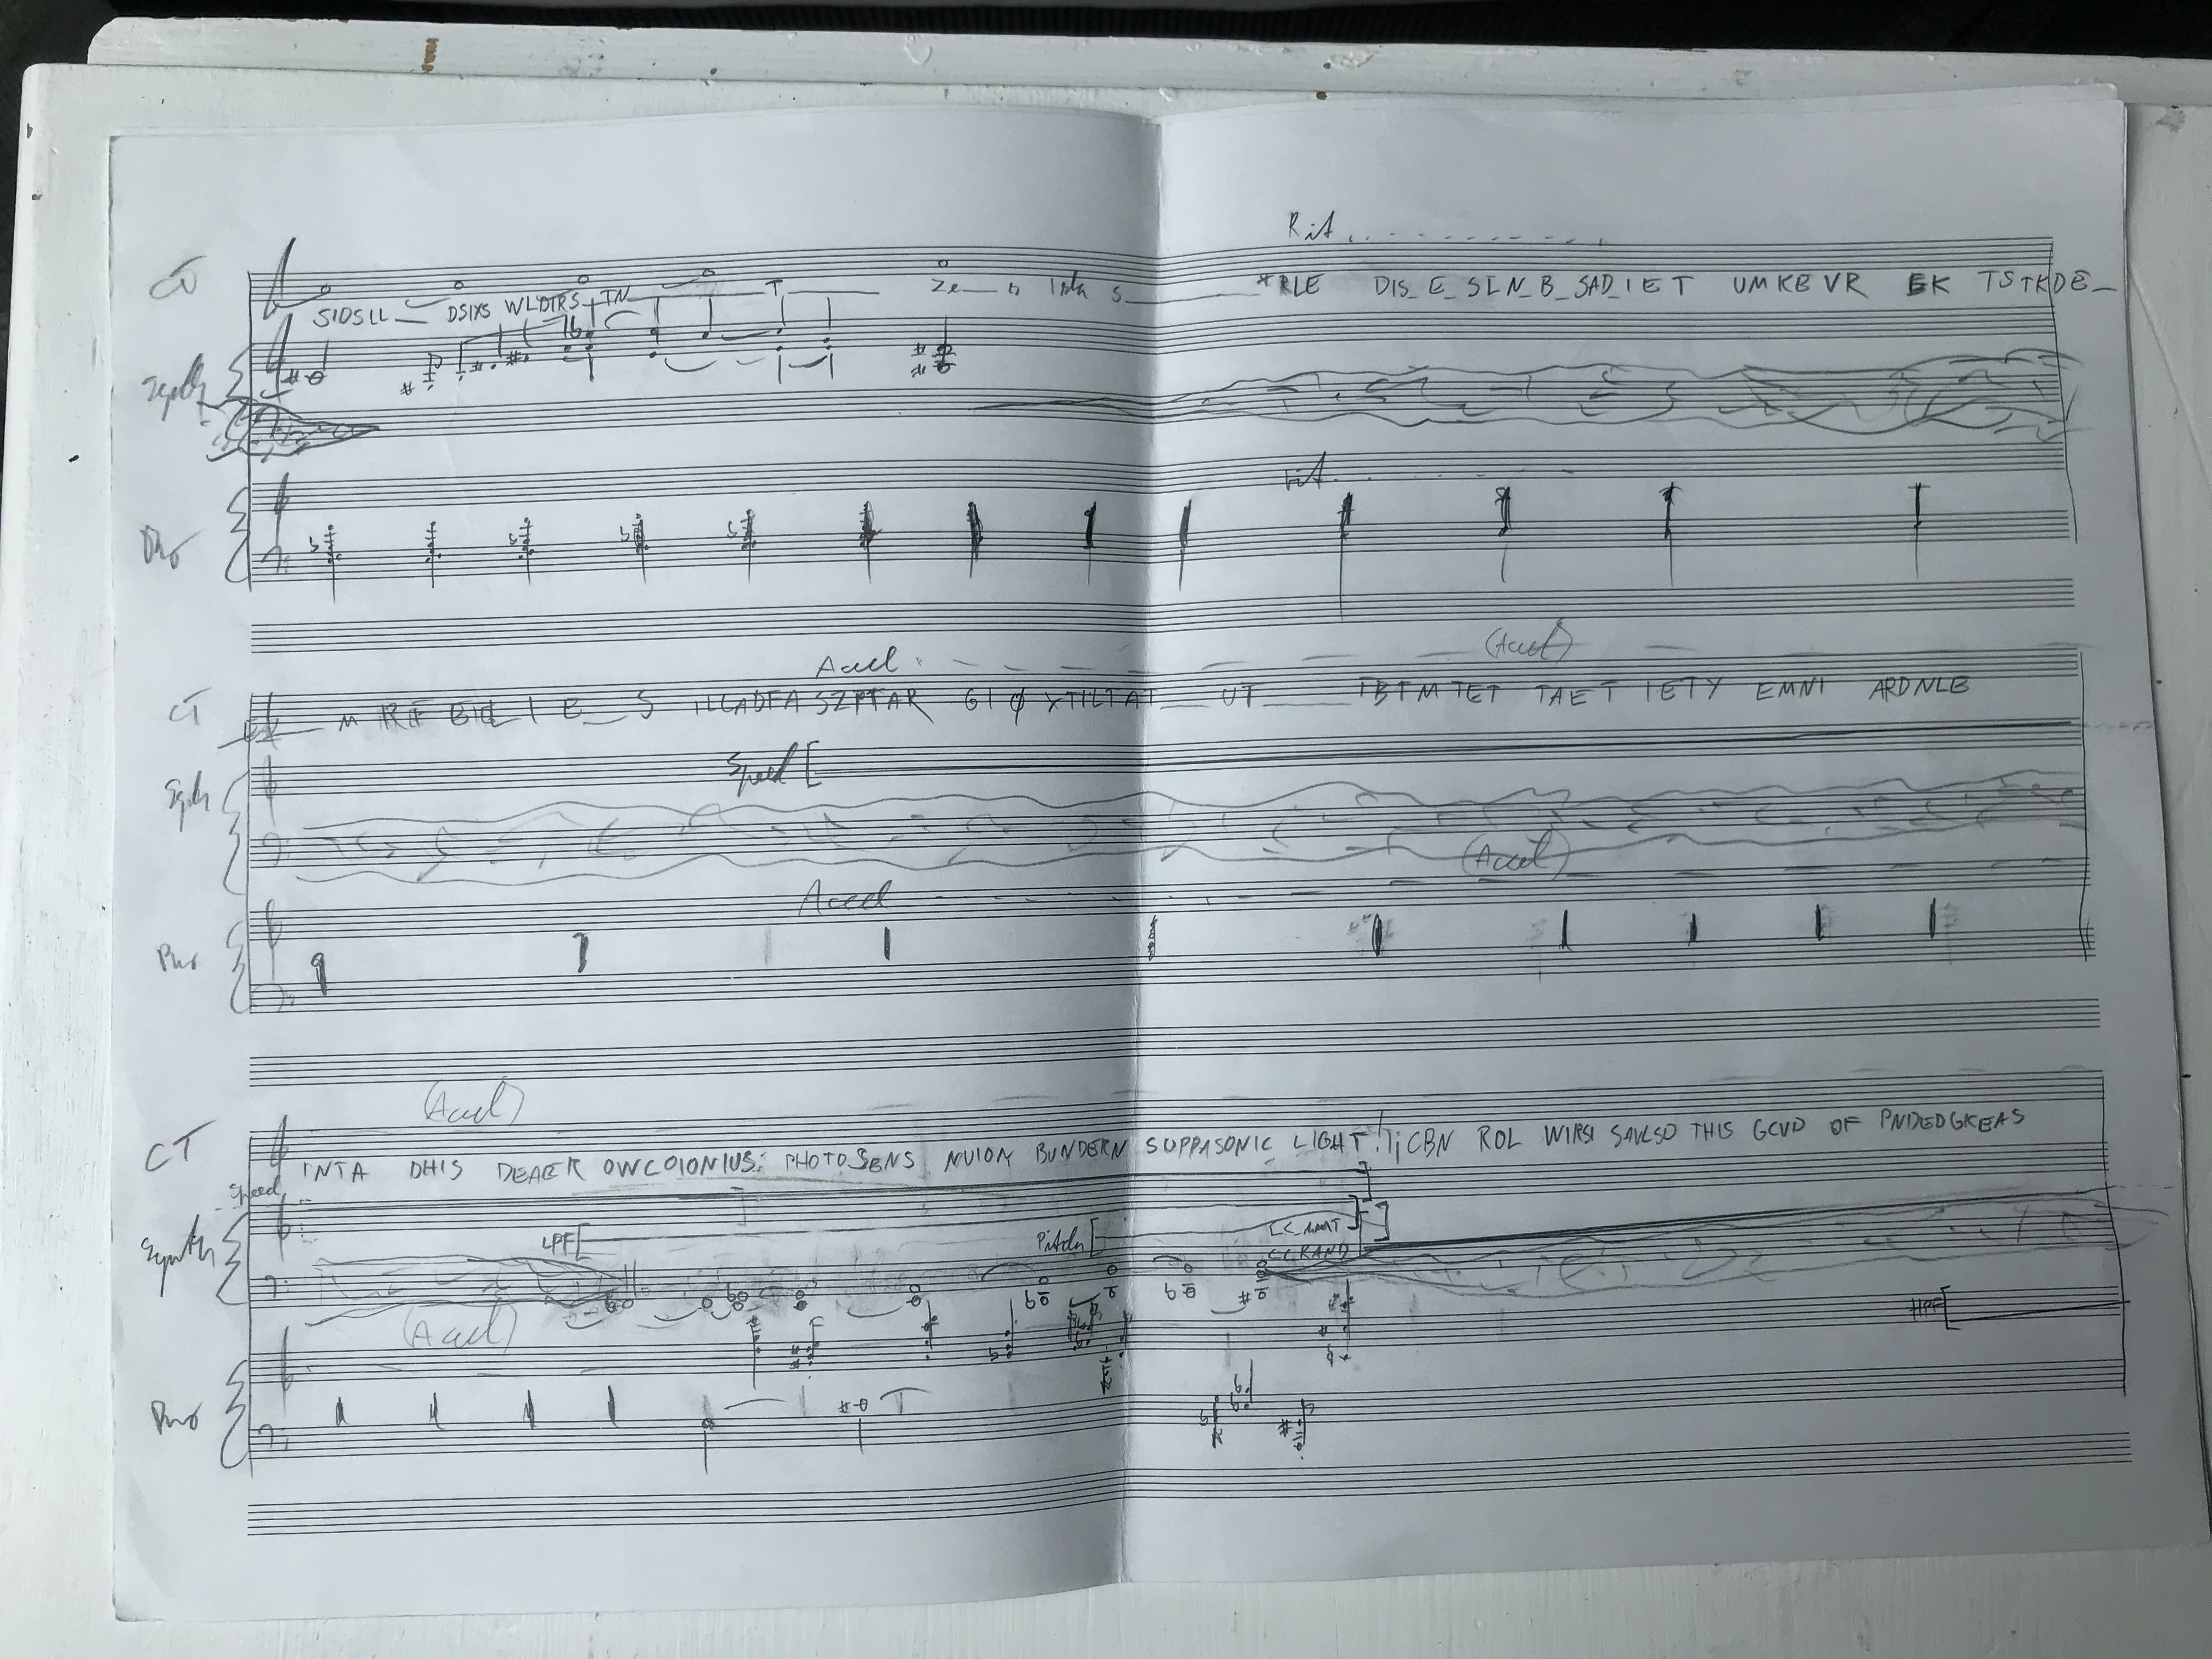 Rit
CT
SIDSLL DSIXS WLDTRS TN T Ze s *RLE DIS_E_SLN_B_SAD_IET UMKBVR EK TSTKDE_
Synth
rit
Pno
Accel (Accel)
CT M RF I E S ILLADFA SZPTAR GIØYTILTAT UT TBTMTET TAET IETY EMNI ARDNLB
Speed [
Synth
(Accel)
Accel
Pno
(Accel)
CT
INTA DHIS DEAER OWCOIONIUS: PHOTOSENS NUION BUNDERN SUPPASONIC LIGHT! CBN ROL WIRSI SAVLSO THIS GCVD OF PNDEDGKEAS
Speed
Synth
LPF[ Pitch[ CC RAND
HPF[
(Accel)
Pno